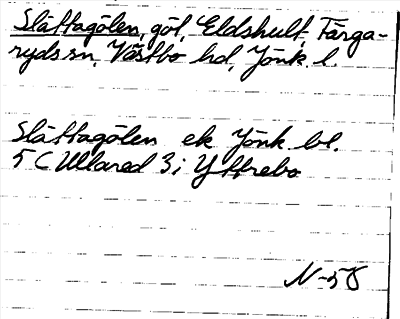 Slättagölen, göl, Eldshult, Färga-
ryds sn, Västbo hd, Jönk. l.
Slättagölen ek Jönk bl.
5 C Ullared 3 i Yttrebo
N-58